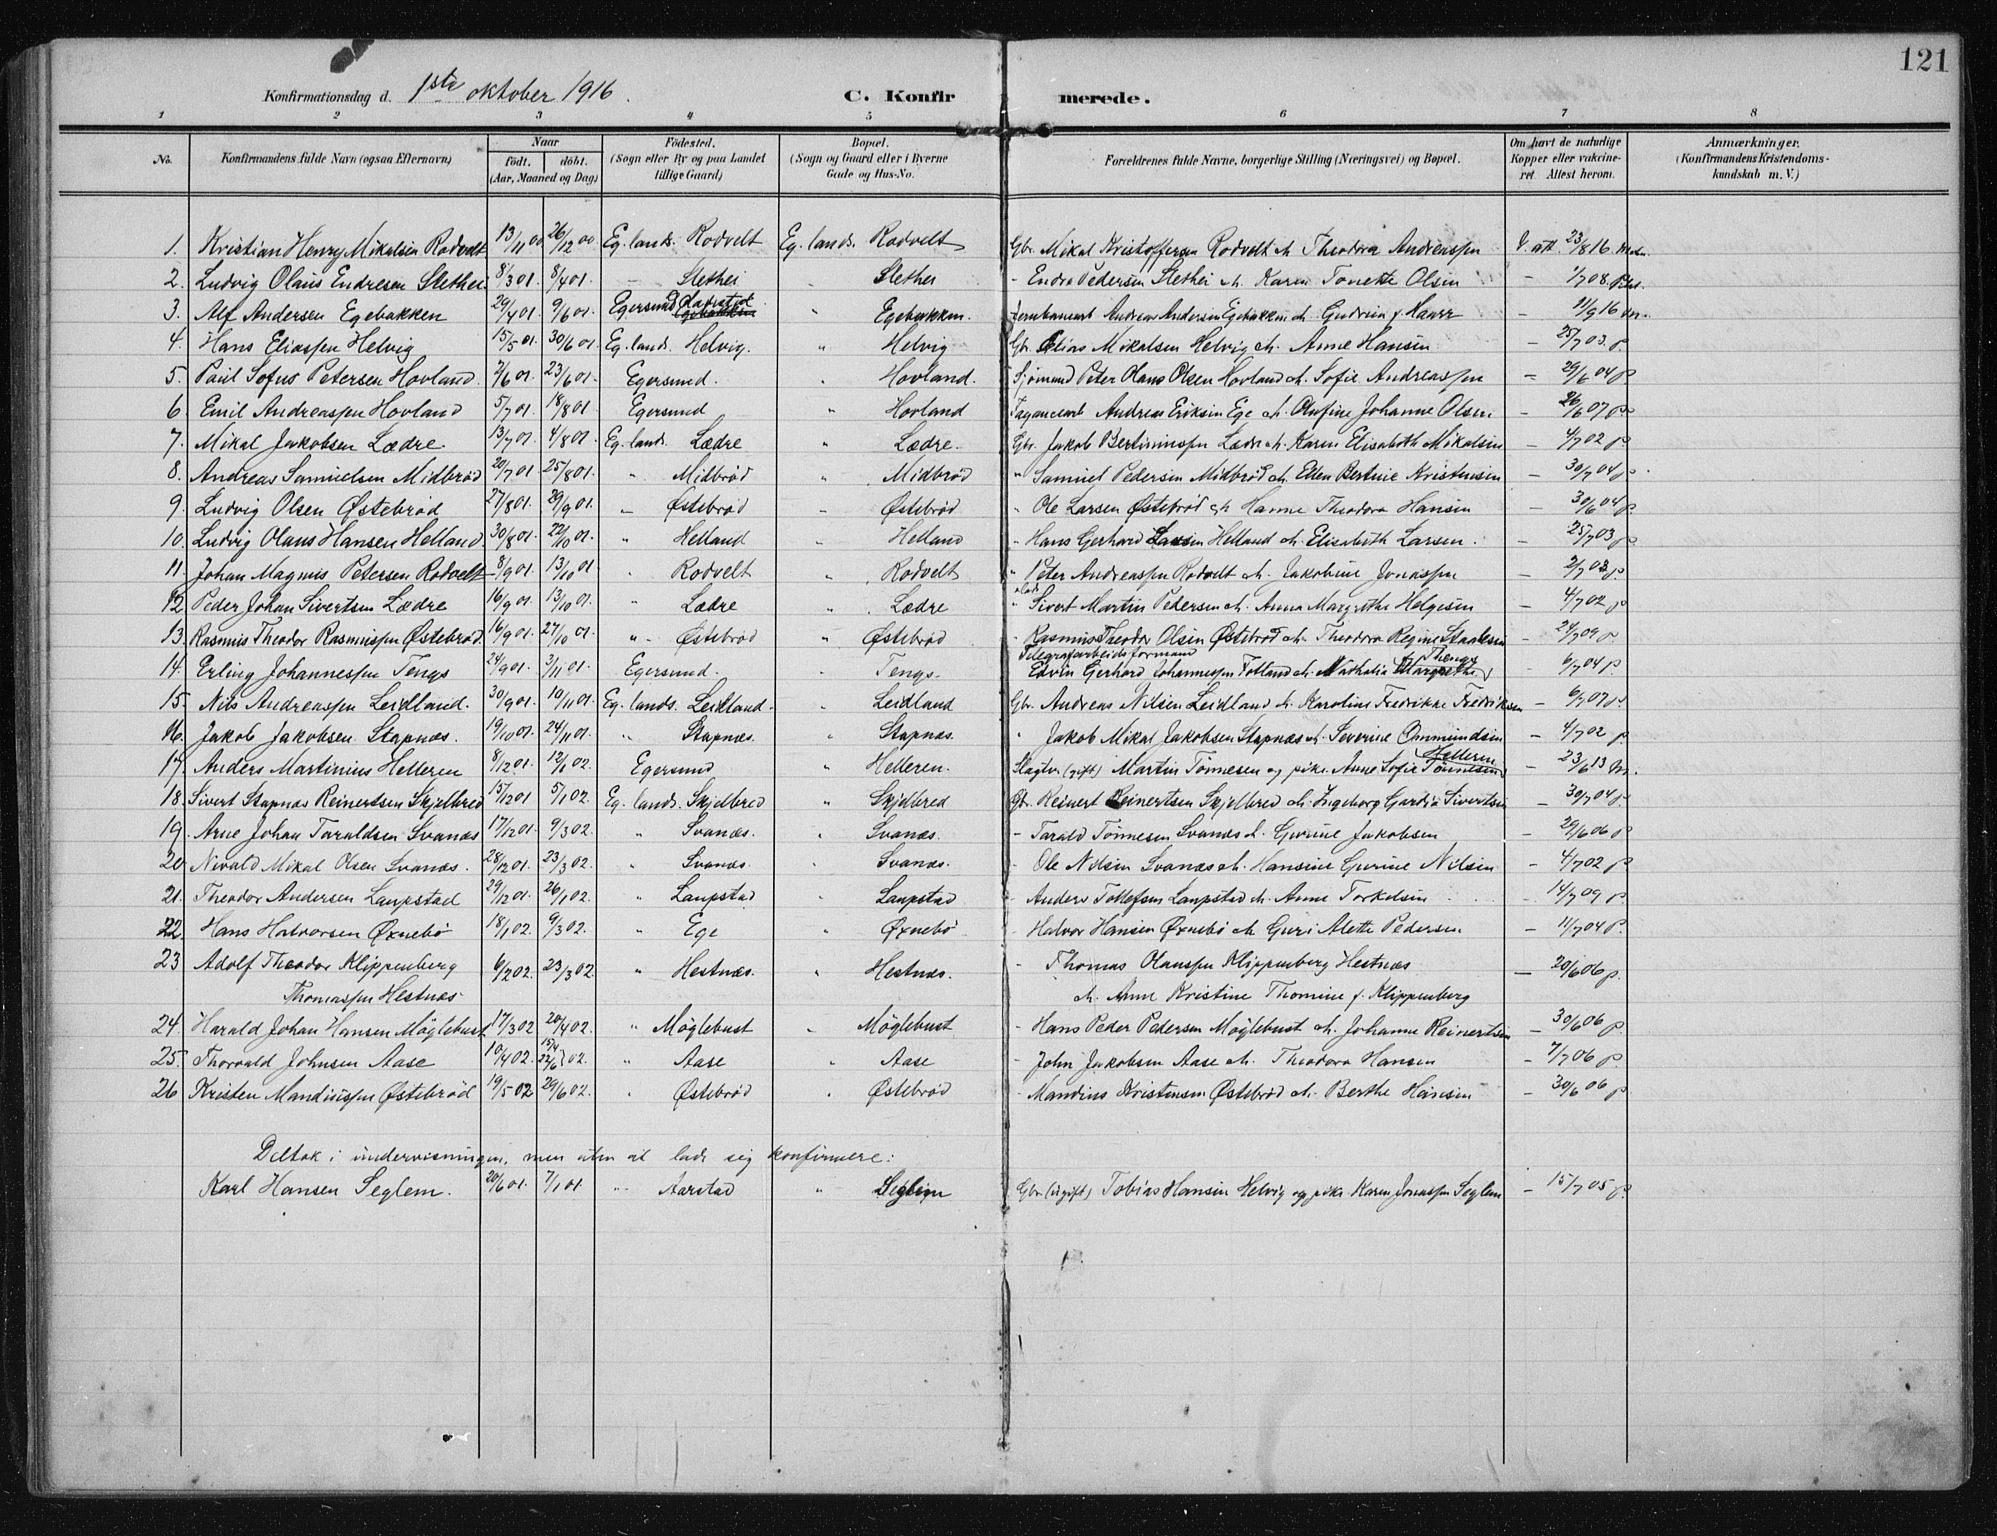 121
Konfirmationsdag d. 1ste oktober 1916. C. Konfirmerede.
1 2 3 4 5 6 7 8
No. Konfirmandens fulde Navn (ogsaa Efternavn) Naar født. døbt. (Aar, Maaned og Dag) Fødested. (Sogn eller By og paa Landet tillige Gaard) Bopæl. (Sogn og Gaard eller i Byerne Gade og Hus-No. Forældrenes fulde Navne, borgerlige Stilling (Næringsvei) og Bopæl. Om havt de naturlige Kopper eller vakcineret. Attest herom. Anmærkninger. (Konfirmandens Kristendomskundskab m. V.)
1. Kristian Henry Mikalsen Rodvelt 13/11 00 26/12 00. Eg. lands. Rodvelt Eg. lands. Rodvelt Gbr. Mikal Kristoffersen Rodvelt o h. Theodora Andreassen V. att. 23/8 16.
2. Ludvig Olaus Endresen Slethei 8/3 01. 8/4 01. – Slethei " Slethei - Endre Pedersen Slethei o h. Karen Tonette Olsen – 1/7 08.
3. Alf Andersen Egebakken 29/4 01. 9/6 01. Egersund " Egebakken. Andreas Andersen Egebakken o h. Gudrun f. Haarr – 11/9 16
4. Hans Eliassen Helvig 15/5 01. 30/6 01. Eg. lands. Helvig. " Helvig Gbr. Elias Mikalsen Helvig o h. Anne Hansen – 25/7 03. p.
5. Paul Sofus Petersen Hovland. 2/6 01. 23/6 01. Egersund. " Hovland. Sjømand Peter Olaus Olsen Hovland o h. Sofie Andreassen – 29/6 04 p
6. Emil Andreassen Hovland 5/7 01. 18/8 01. Egersund " Hovland Andreas Eriksen Ege o h. Olufine Johanne Olsen – 26/6 07 p
7. Mikal Jakobsen Lædre. 13/7 01. 4/8 01. Eg. lands. Lædre " Lædre. Gbr. Jakob Bertinussen Lædre o h. Karen Elisabeth Mikalsen – 4/7 02 p.
8. Andreas Samuelsen Midbrød 20/7 01. 25/8 01. " Midbrød " Midbrød " Samuel Pedersen Midbrød o h. Ellen Bertine Kristensen – 30/7 04 p.
9. Ludvig Olsen Østebrød 27/8 01. 29/9 01. " Østebrød " Østebrød " Ole Larsen Østebrød o h. Hanne Theodora Hansen – 30/6 04 p
10. Ludvig Olaus Hansen Helland. 30/8 01. 22/10 01. " Helland " Helland " Hans Gerhard Larsen Helland o h. Elisabeth Larsen. – 25/7 03 p.
11. Johan Magnus Petersen Rodvelt 8/9 01. 13/10 01 " Rodvelt " Rodvelt " Peter Andreassen Rodvelt o h. Jakobine Jonassen – 2/7 03 p.
12 Peder Johan Sivertsen Lædre 16/9 01. 13/10 01. " Lædre " Lædre " Sivert Martin Pedersen o h. Anna Margrethe Helgesen – 4/7 02 p
13. Rasmus Theodor Rasmussen Østebrød. 16/9 01. 27/10 01. " Østebrød " Østebrød - Rasmus Theodor Olsen Østebrød o h. Theodora Regine Staalesen – 24/7 09 p
14. Erling Johannessen Tengs 24/9 01. 3/11 01. Egersund. " Tengs. Telegrafarbeidsformand Edvin Gerhard Johannessen Folland o h. Nathalia Thengs – 6/7 04 p.
15. Nils Andreassen Leidland. 30/9 01. 10/11 01. Eg. lands. Leidland. " Leidland Gbr. Andreas Nilsen Leidland o h. Karoline Fredrikke Fredriksen – 6/7 07 p.
16. Jakob Jakobsen Stapnæs. 19/10 01. 24/11 01. " Stapnæs. " Stapnæs. " Jakob Mikal Jakobsen Stapnæs o h. Severine Ommundsen – 4/7 02 p.
17. Anders Martinius Helleren 8/12 01. 12/1 02. Egersund " Helleren. Slagter (gift) Martin Tønnesen og pike Anne Sofie Helleren – 23/6 13 M.
18. Sivert Stapnæs Reinertsen Skjelbred 15/12 01 5/1 02. Eg. lands. Skjelbred " Skjelbred Gbr. Reinert Reinertsen Skjelbred o h. Ingeborg Gurdia Sivertsen – 30/7 04 p
19. Arne Johan Taraldsen Svanæs 17/12 01. 9/3 02. " Svanæs. " Svanæs. - Tarald Tønnesen Svanæs o h. Gurine Jakobsen – 29/6 06 p
20. Nivald Mikal Olsen Svanæs. 28/12 01. 23/3 02. " Svanæs " Svanæs. - Ole Nilsen Svanæs o h. Hansine Gurine Nilsen – 4/7 02 p.
21. Theodor Andersen Laupstad 29/12 01. 26/1 02. " Laupstad " Laupstad - Anders Tollefsen Laupstad o h. Anne Torkelsen – 14/7 09 p.
22. Hans Halvorsen Øxnebø 18/1 02. 9/3 02. " Ege " Øxnebø - Halvor Hansen Øxnebø o h. Guri Alette Pedersen – 11/7 04 p.
23 Adolf Theodor Klippenberg 6/2 02. 23/3 02. " Hestnæs. " Hestnæs. - Thomas Olaussen Klippenberg Hestnæs – 20/6 06 p.
Thomassen Hestnæs. o h. Anne Kristine Thomine f. Klippenberg
24. Harald Johan Hansen Møglebust 17/3 02. 20/4 02. " Møglebust " Møglebust - Hans Peder Pedersen Møglebust o h. Johanne Reinertsen – 30/6 06 p.
25. Thorvald Johnsen Aase 10/4 02. 15/4 22/6 } 02. " Aase " Aase - John Jakobsen Aase o h. Theodora Hansen – 7/7 06 p.
26 Kristen Mandiussen Østebrød 19/5 02 29/6 02. " Østebrød " Østebrød - Mandius Kristensen Østebrød o h. Berthe Hansen – 30/6 06 p
Deltok i undervisningen, men uten at lade sig konfirmere:
Karl Hansen Seglem. 20/6 01. 7/1 01. " Aarstad " Seglem Gbr (ugift) Tobias Hansen Helvig og pike Karen Jonassen Seglem – 15/7 05 p.